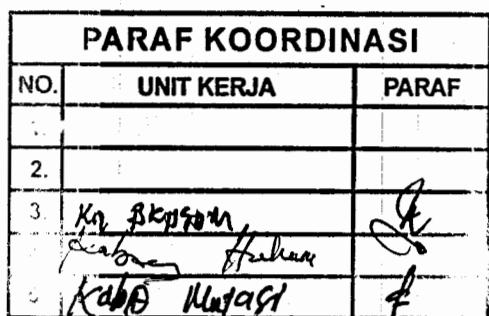 PARAF KOORDINASI
NO. UNIT KERJA PARAF
1.
2.
3. Ka BKPSDM
Kabag Hukum
Kabid Mutasi